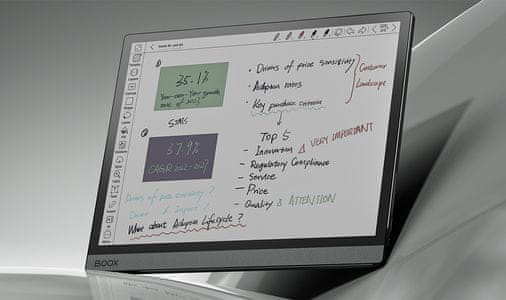 ①
35.1%
Year-over-Year growth
rate of 2023
STATS
②
37.9%
CAGR 2022-2027
Drivers of price sensitivity ?
Driver & Impact ?
What about Adoption Lifecycle ?
• Drivers of price sensitivity
• Adoption rates
• Key purchase criteria
Customer
Landscape
TOP 5
- Innovation VERY IMPORTANT
- Regulatory Compliance
- Service
- Price
- Quality ATTENTION
BOOX